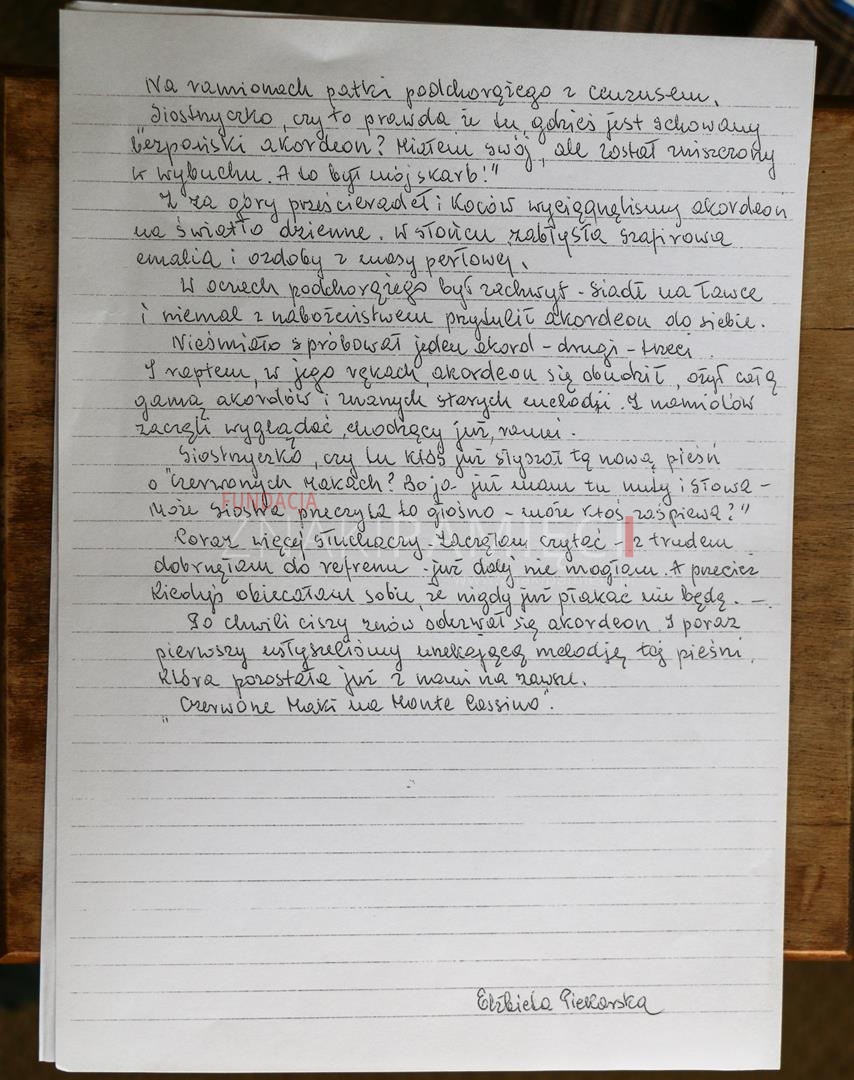 Na ramionach patki podchorążego z cenzusem.
"Siostrzyczko, czy to prawda że tu, gdzieś jest schowany
bezpański akordeon? Miałem swój, ale został zniszczony
w wybuchu. A to był mój skarb!"
Z za opry prześcieradeł i koców wyciągnęliśmy akordeon
na światło dzienne. W słońcu zabłysła szafirowa
emalia i ozdoby z masy perłowej.
W oczach podchorążego był zachwyt - siadł na ławce
i niemal z nabożeństwem przytulił akordeon do siebie.
Nieśmiało spróbował jeden akord - drugi - trzeci.
I raptem, w jego rękach, akordeon się obudził, ożył całą
gamą akordów i znanych starych melodji. Z namiotów
zaczęli wyglądać, chodzący już, ranni.
Siostrzyczko, czy tu ktoś już słyszał tą nową pieśń
o "Czerwonych Makach? Bo ja już mam tu nuty i słowa -
Może siostra przeczyta to głośno - może ktoś zaśpiewa?"
FUNDACJA
ZNAKI PAMIĘCI
Coraz więcej słuchaczy - zaczęłam czytać - z trudem
dobrnęłam do refrenu - już dalej nie mogłam. A przecież
kiedyś obiecałam sobie, że nigdy już płakać nie będę. -
Po chwili ciszy znów odezwał się akordeon. I poraz
pierwszy usłyszeliśmy urzekającą melodję tej pieśni,
która pozostała już z nami na zawsze.
"Czerwone Maki na Monte Cassino".
Elżbieta Piekarska